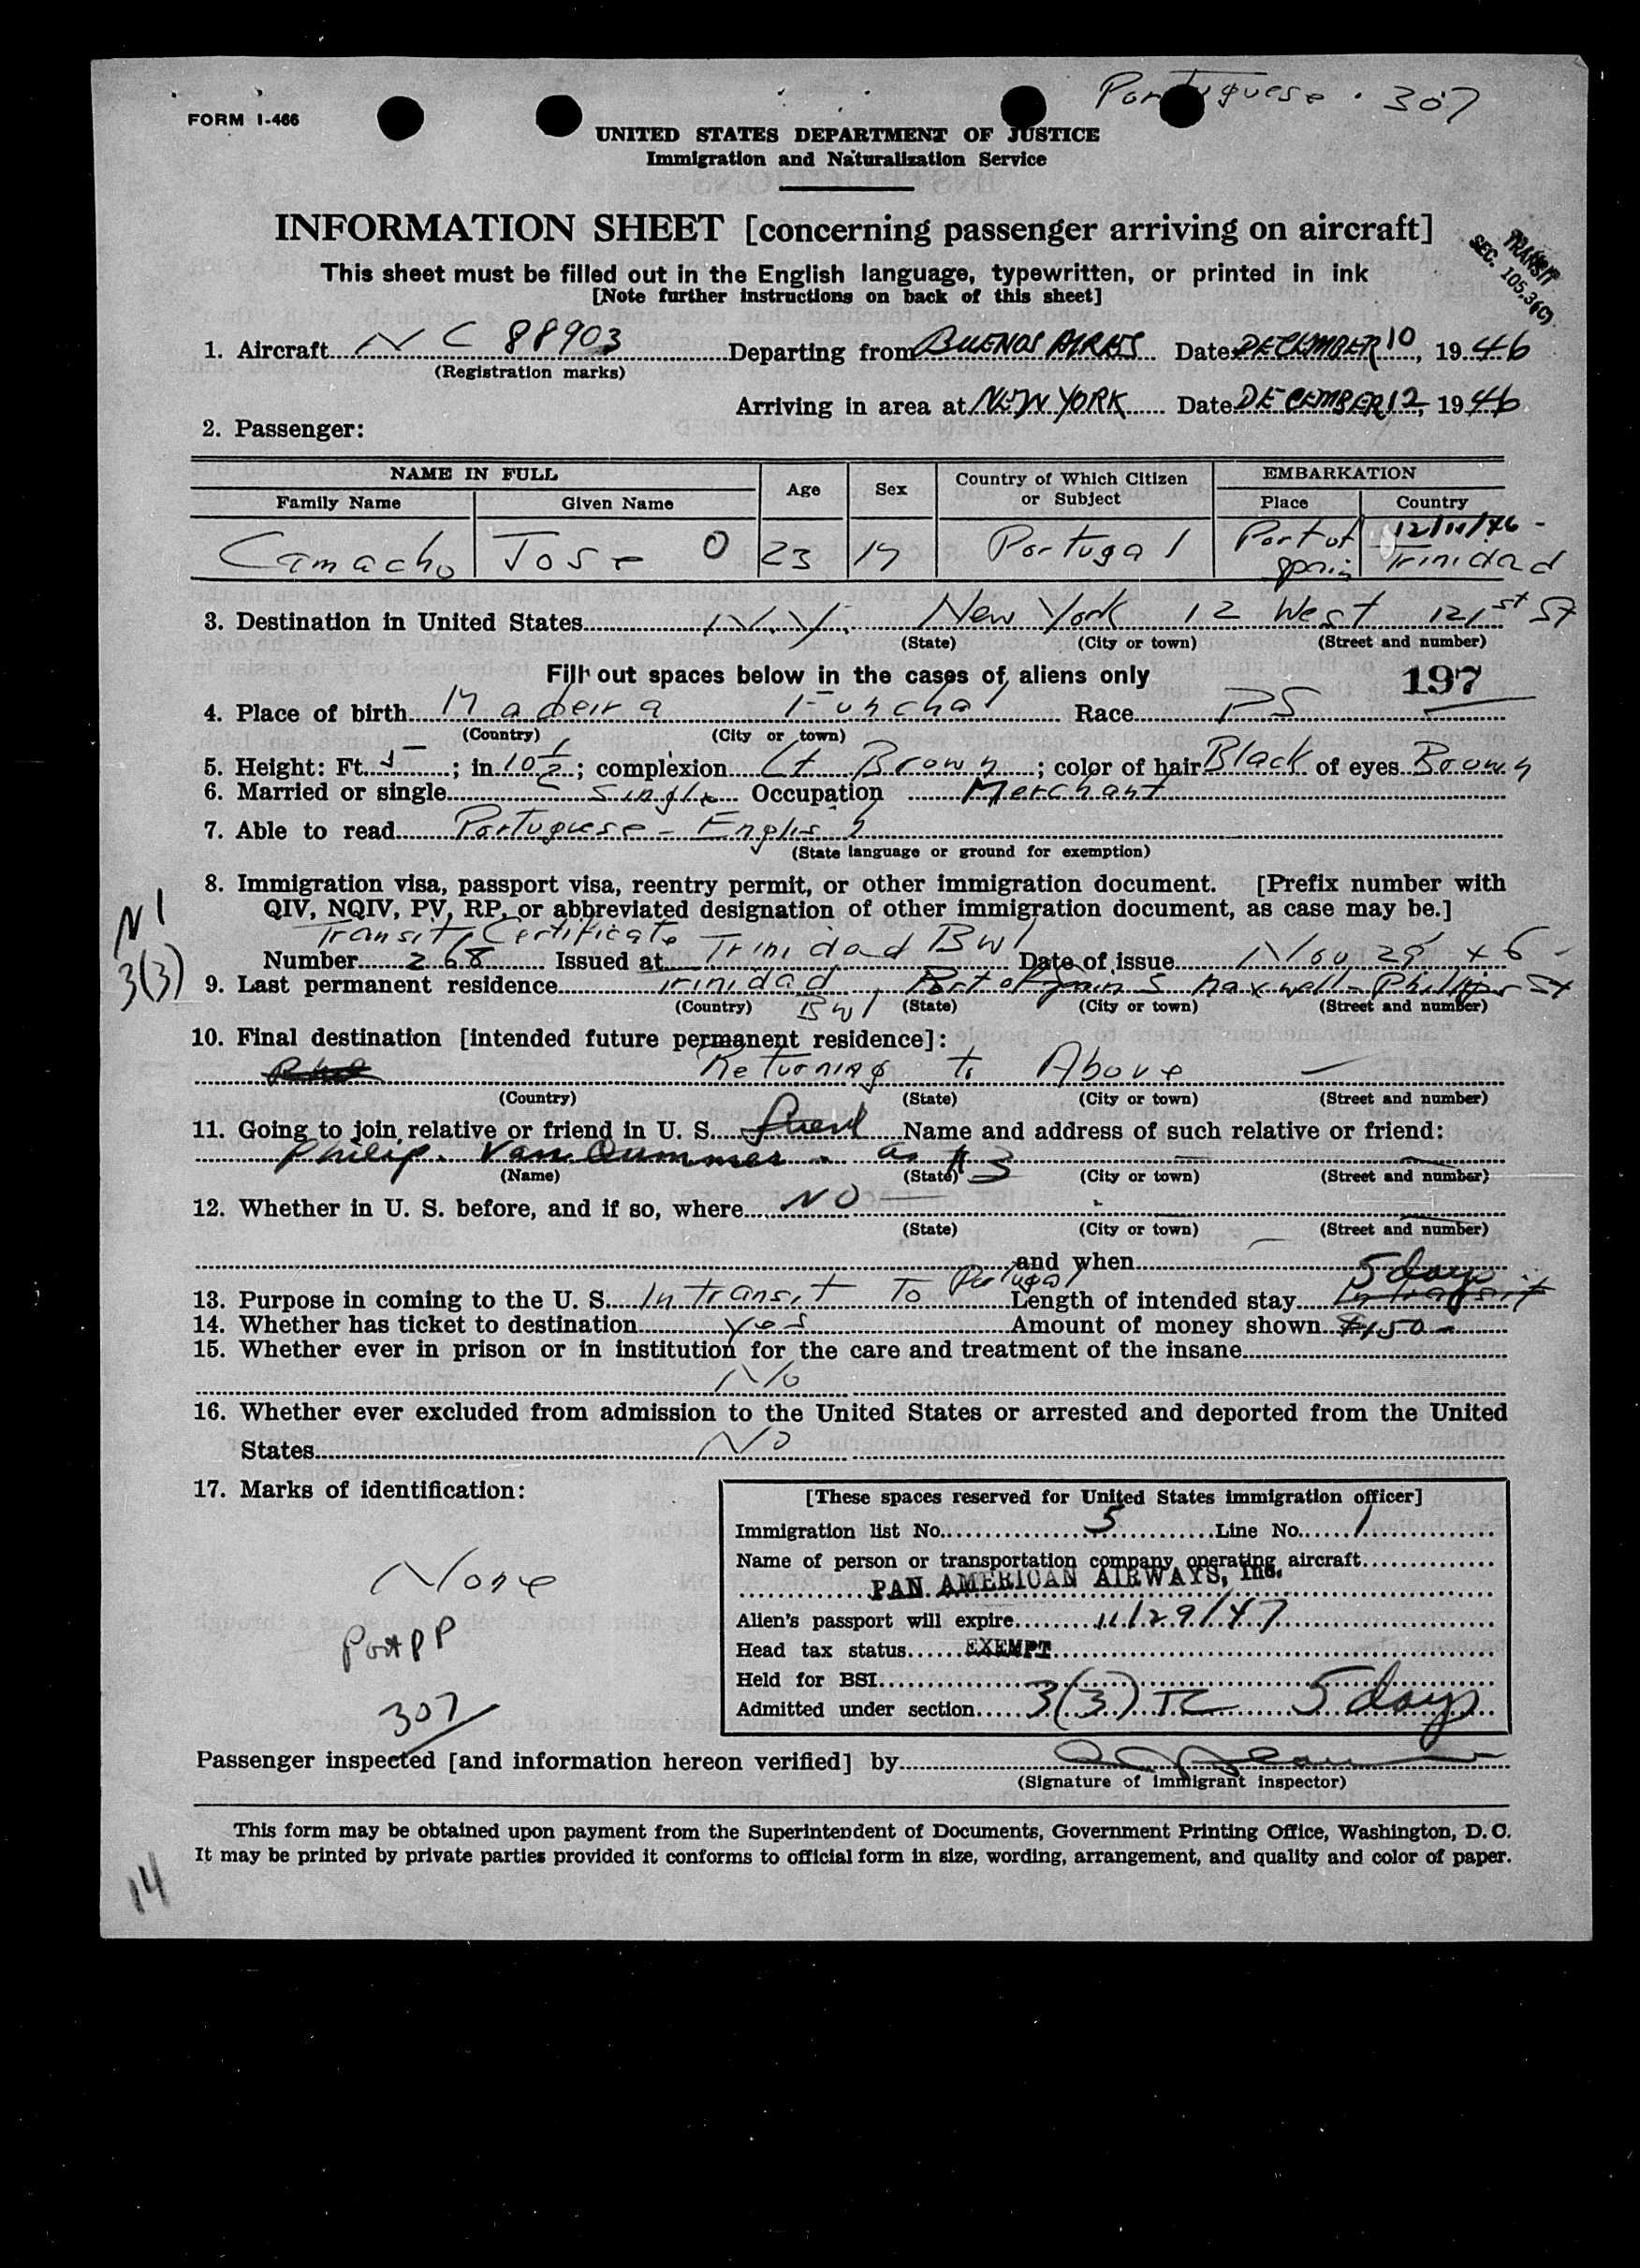 Portuguese . 307
FORM I-466
UNITED STATES DEPARTMENT OF JUSTICE
Immigration and Naturalization Service
INFORMATION SHEET [concerning passenger arriving on aircraft]
TRANSIT
SEC. 105.3(C)
This sheet must be filled out in the English language, typewritten, or printed in ink
[Note further instructions on back of this sheet]
1. Aircraft NC 88903 Departing from BUENOS AIRES Date DECEMBER 10, 1946
(Registration marks)
Arriving in area at NEW YORK Date DECEMBER 12, 1946
2. Passenger:
NAME IN FULL Age Sex Country of Which Citizen or Subject EMBARKATION
Family Name Given Name Place Country
12/11/46 -
Camacho Jose O 23 M Portugal Port of Spain Trinidad
3. Destination in United States N.Y. New York 12 West 121st St
(State) (City or town) (Street and number)
Fill out spaces below in the cases of aliens only 197
4. Place of birth Madeira Funchal Race PS
(Country) (City or town)
5. Height: Ft. 5; in. 10 1/2; complexion Lt Brown; color of hair Black of eyes Brown
6. Married or single Single Occupation Merchant
7. Able to read Portuguese - English
(State language or ground for exemption)
8. Immigration visa, passport visa, reentry permit, or other immigration document. [Prefix number with
QIV, NQIV, PV, RP, or abbreviated designation of other immigration document, as case may be.]
N1
3(3)
Transit Certificate
Number 268 Issued at Trinidad BWI Date of issue Nov 29 46 -
9. Last permanent residence Trinidad BWI Port of Spain 5 Maxwell-Phillips St
(Country) (State) (City or town) (Street and number)
10. Final destination [intended future permanent residence]:
Returning to Above —
(Country) (State) (City or town) (Street and number)
11. Going to join relative or friend in U. S. friend Name and address of such relative or friend:
Philip Van as #3
(Name) (State) (City or town) (Street and number)
12. Whether in U. S. before, and if so, where NO
(State) (City or town) (Street and number)
and when
13. Purpose in coming to the U. S. In transit To Portugal Length of intended stay In transit 5 days
14. Whether has ticket to destination Yes Amount of money shown $150-
15. Whether ever in prison or in institution for the care and treatment of the insane
No
16. Whether ever excluded from admission to the United States or arrested and deported from the United
States No
17. Marks of identification:
None
Port PP
307
[These spaces reserved for United States immigration officer]
Immigration list No. 5 Line No. 1
Name of person or transportation company operating aircraft
PAN AMERICAN AIRWAYS, Inc.
Alien's passport will expire 11/29/47
Head tax status EXEMPT
Held for BSI
Admitted under section 3(3) TC 5 days
Passenger inspected [and information hereon verified] by
(Signature of immigrant inspector)
This form may be obtained upon payment from the Superintendent of Documents, Government Printing Office, Washington, D. C.
It may be printed by private parties provided it conforms to official form in size, wording, arrangement, and quality and color of paper.
14